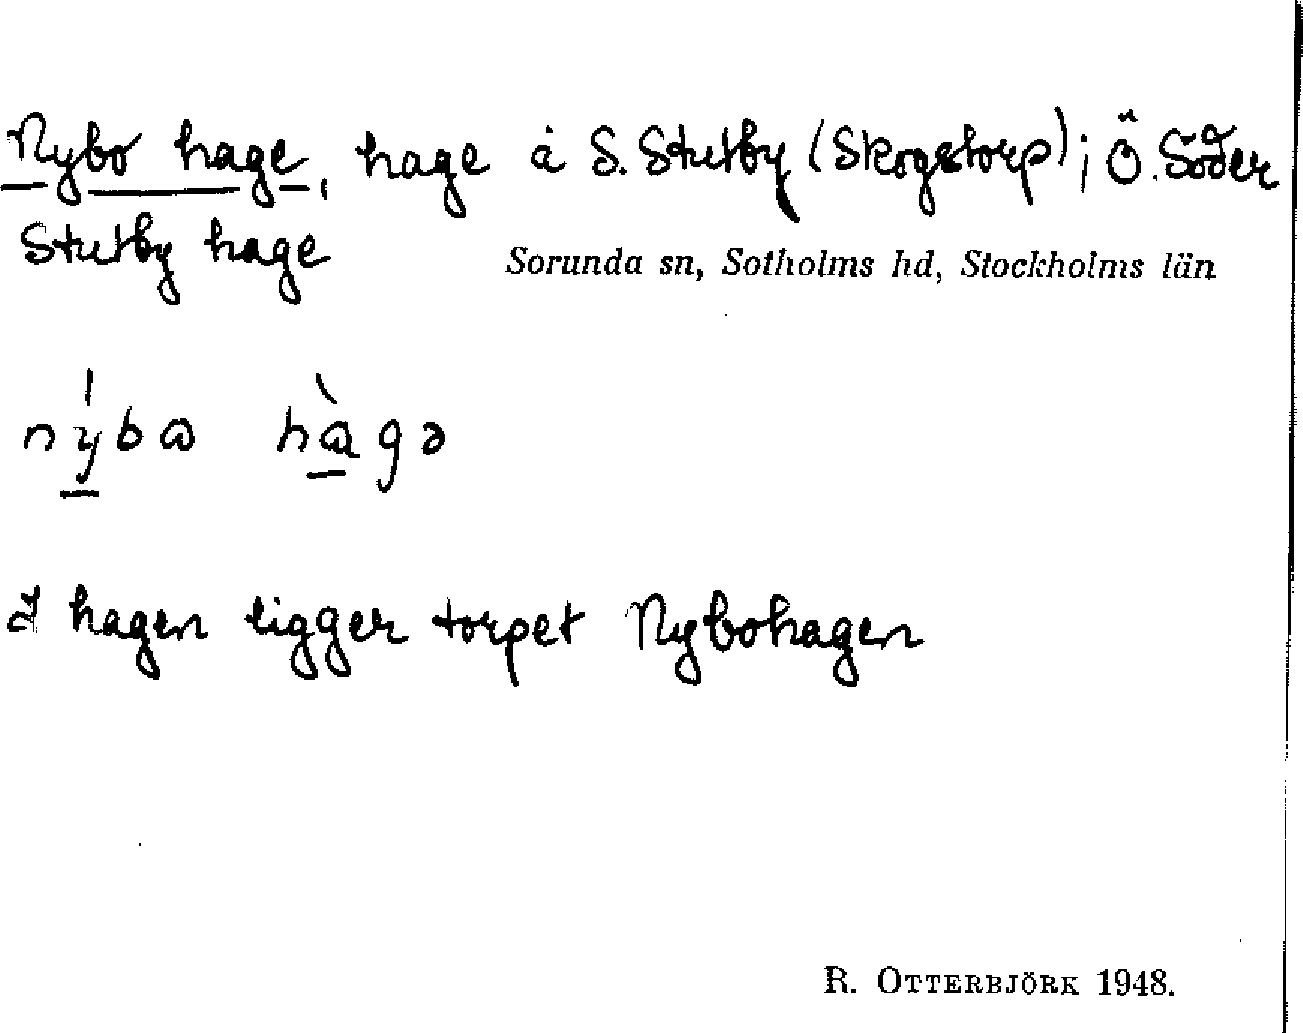 Nybo hage, hage å S. Stutby (Skogstorp); Ö. Söder
Stutby hage
Sorunda sn, Sotholms hd, Stockholms län
nýbω hàgə
I hagen ligger torpet Nybohagen
R. OTTERBJÖRK 1948.